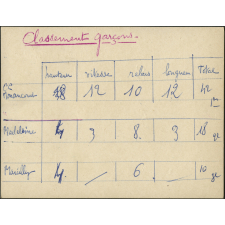 Classement garçons.
hauteur vitesse relais longueur Total
Romancourt 8 12 10 12 42
1er
Madeleine 4 3 8. 3 18 2e
Marcilly 4. / 6 / 10 3e